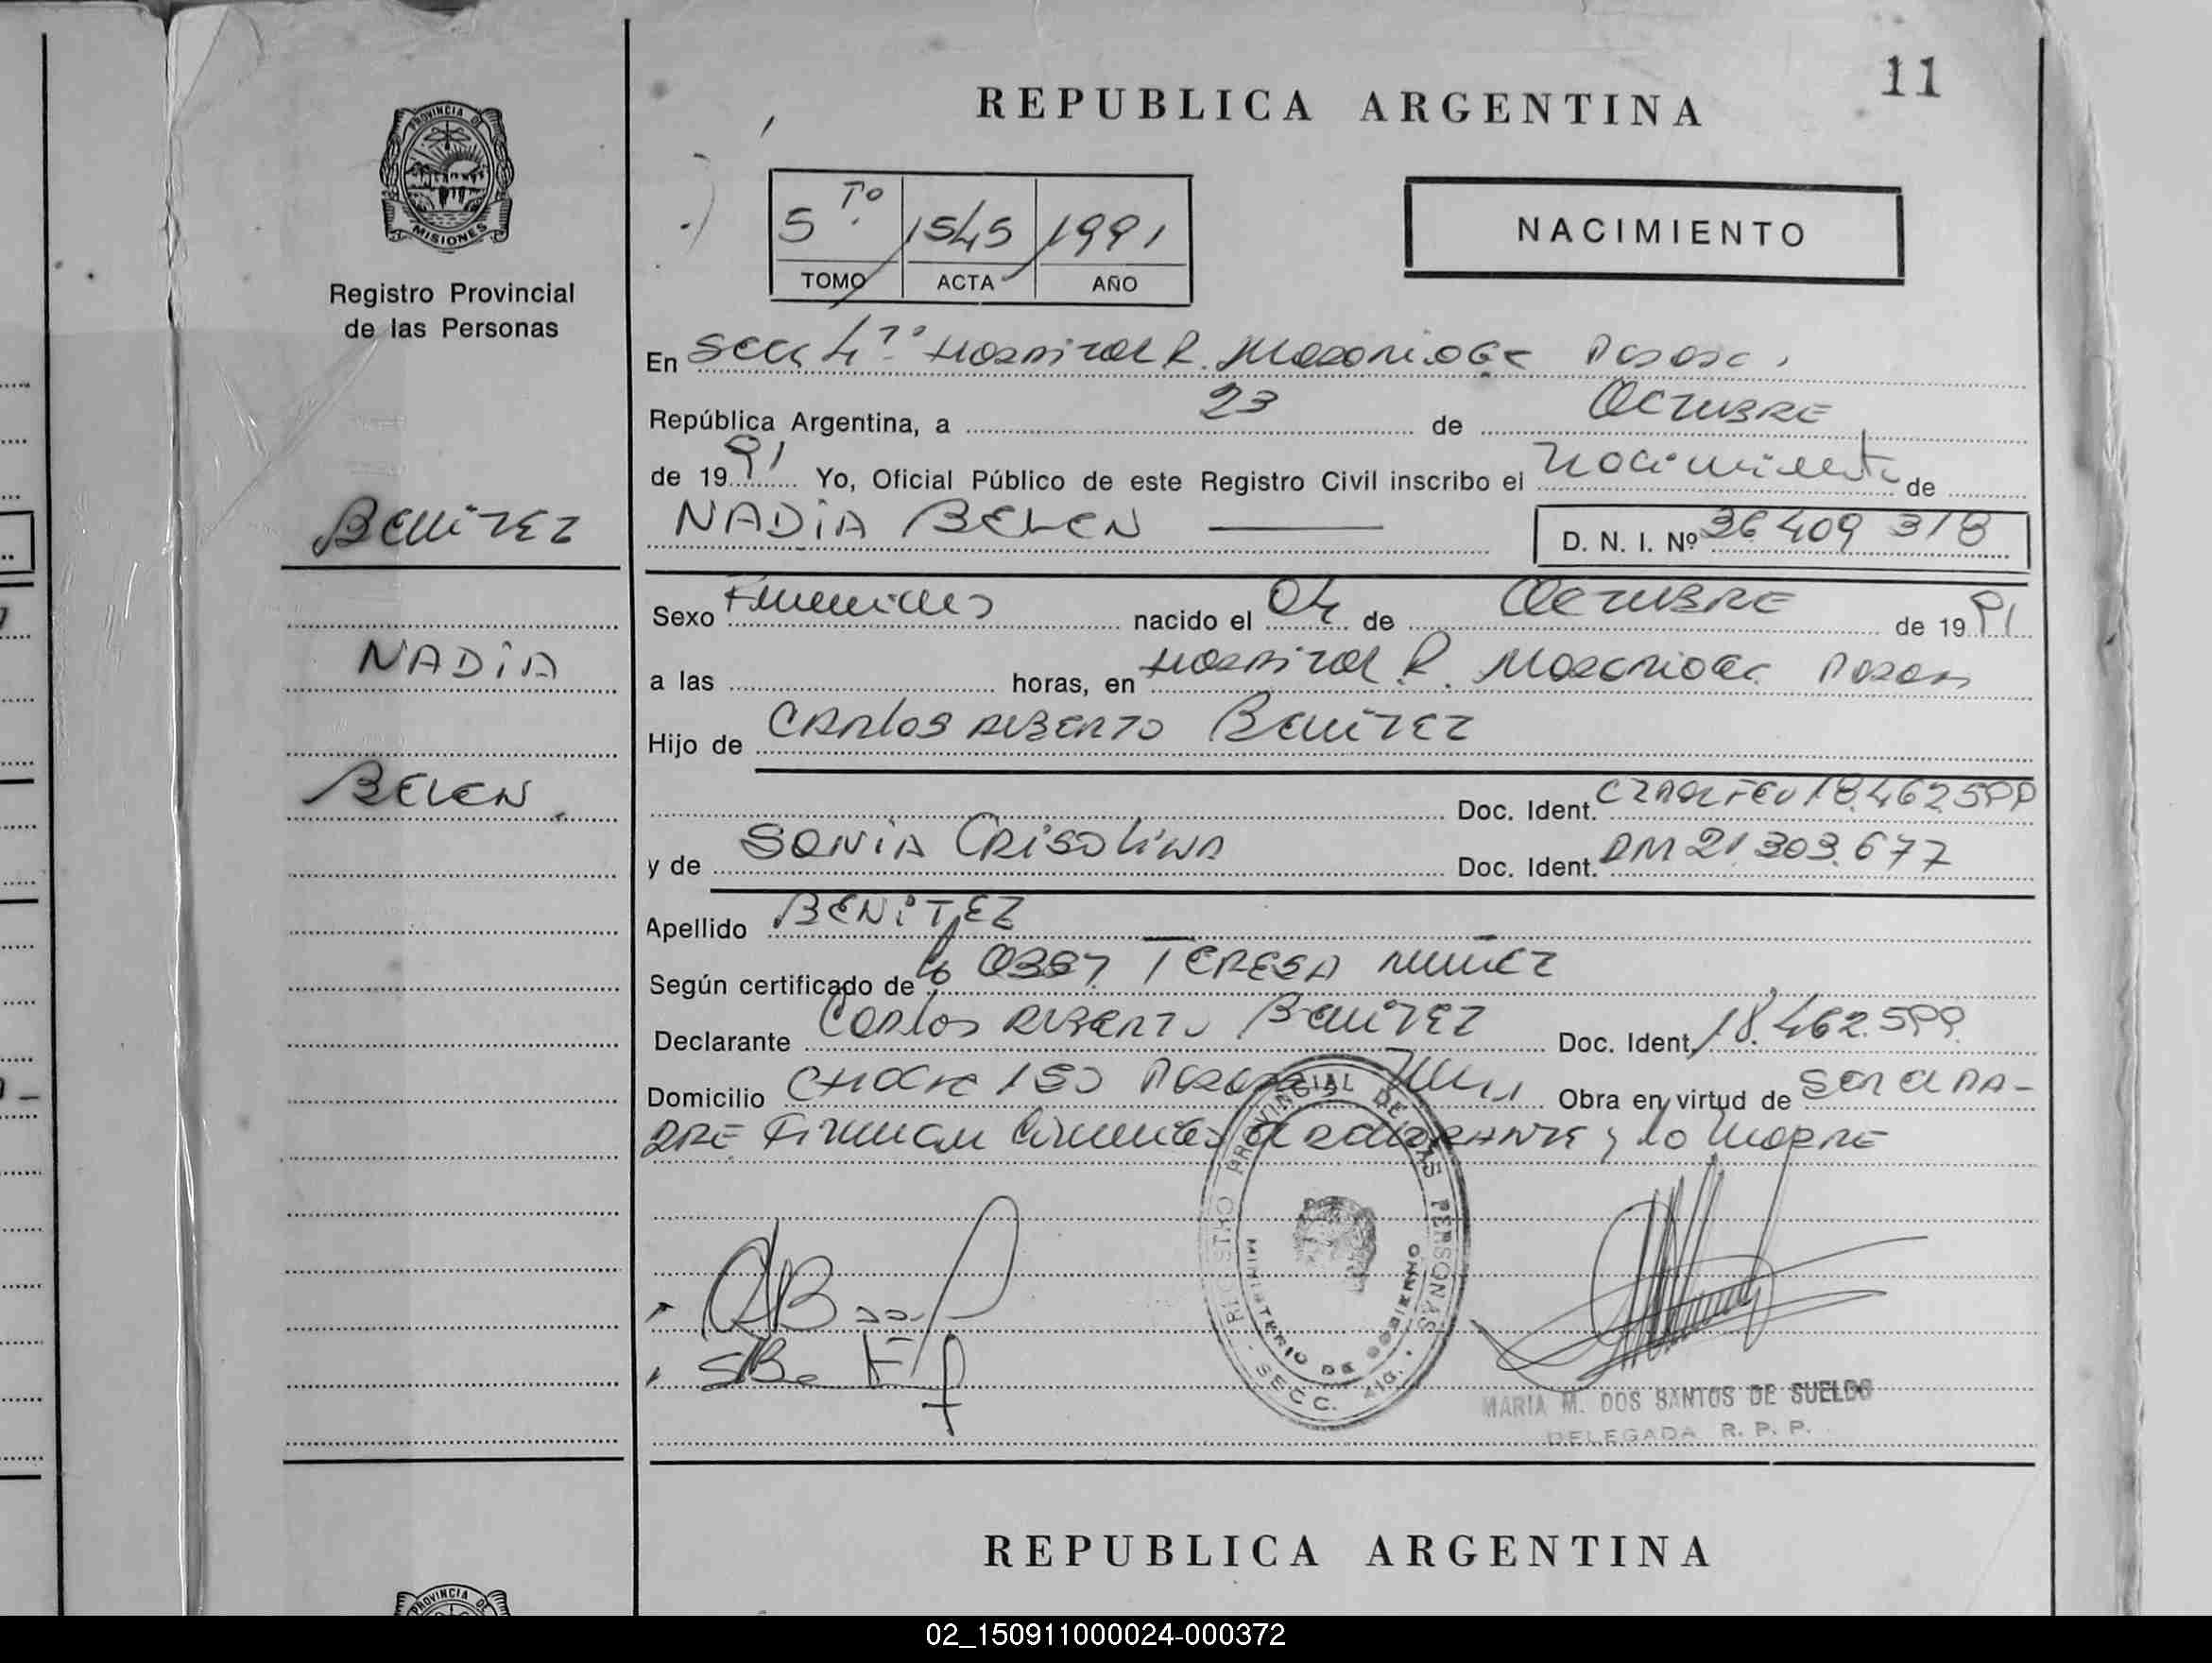 11
REPUBLICA ARGENTINA
PROVINCIA DE
MISIONES
Registro Provincial
de las Personas
5 Tº 1545 1991
TOMO ACTA AÑO
NACIMIENTO
En Secc 4ª Hospital R. Madariaga Posadas
República Argentina, a 23 de Octubre
de 1991 Yo, Oficial Público de este Registro Civil inscribo el nacimiento de
BENITEZ
NADIA BELEN
D. N. I. Nº 36 409 318
Sexo Femenino nacido el 04 de Octubre de 1991
NADIA
a las horas, en Hospital R. Madariaga Posadas
Hijo de Carlos Alberto Benitez
BELEN
Doc. Ident. 18.462599
y de SONIA Crisolina Doc. Ident. DNI 21.303.677
Apellido BENITEZ
Según certificado de TERESA NUÑEZ
Declarante Carlos Alberto Benitez Doc. Ident. 18.462.599
Domicilio Posadas Obra en virtud de Ser el pa-
dre Firman el declarante y la Madre
REGISTRO PROVINCIAL DE LAS PERSONAS
MINISTERIO DE GOBIERNO
SECC. 4ta.
MARIA M. DOS SANTOS DE SUELDO
DELEGADA R. P. P.
REPUBLICA ARGENTINA
PROVINCIA DE
02_150911000024-000372